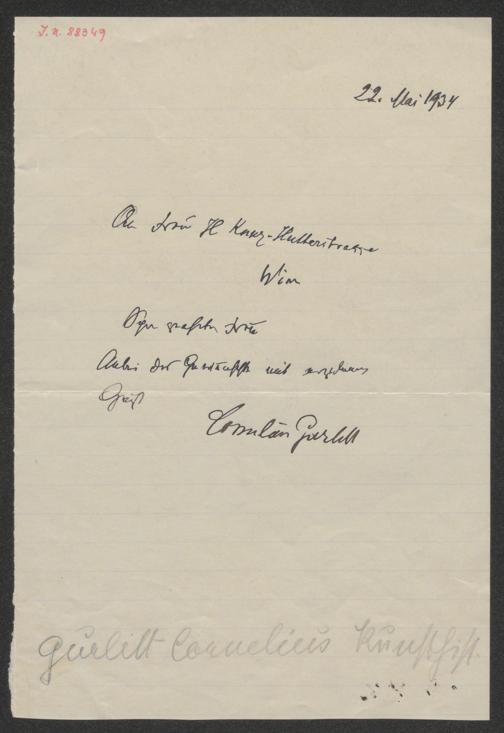 J.N. 88349
22. Mai 1934
An Frau H
Wien
Sehr geehrte Frau
Anbei die mit ergebenem
Gruß
Cornelius Gurlitt
Gurlitt Cornelius Kunsthist.